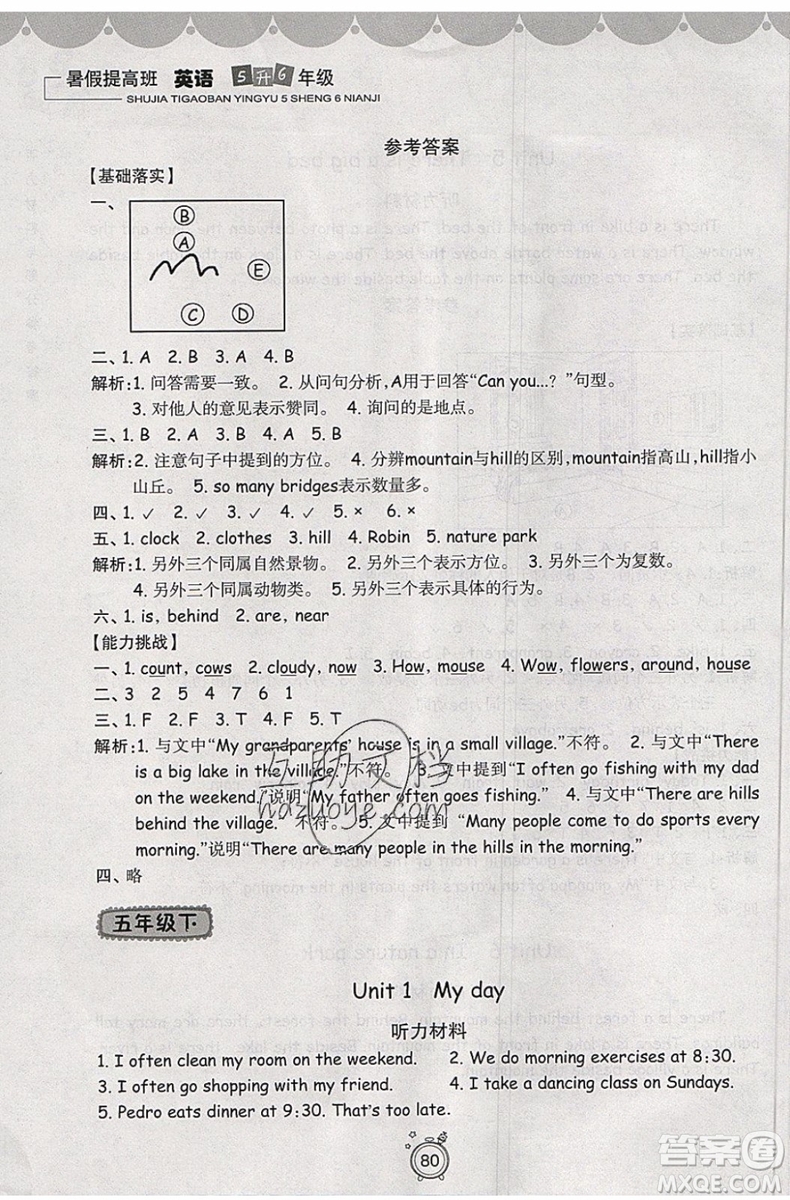 暑假提高班 英语 5升6年级
SHUJIA TIGAOBAN YINGYU 5 SHENG 6 NIANJI
参考答案
【基础落实】
一、
B
A
E
C D
二、1. A 2. B 3. A 4. B
解析:1. 问答需要一致。 2. 从问句分析,A用于回答“Can you...? ”句型。
3. 对他人的意见表示赞同。 4. 询问的是地点。
三、1. B 2. B 3. A 4. A 5. B
解析:2. 注意句子中提到的方位。 4. 分辨mountain与hill的区别,mountain指高山,hill指小
山丘。 5. so many bridges表示数量多。
四、1. ✓ 2. ✓ 3. ✓ 4. ✓ 5. × 6. ×
五、1. clock 2. clothes 3. hill 4. Robin 5. nature park
解析:1. 另外三个同属自然景物。 2. 另外三个表示方位。 3. 另外三个为复数。
4. 另外三个同属动物类。 5. 另外三个表示具体的行为。
六、1. is, behind 2. are, near
【能力挑战】
一、1. count, cows 2. cloudy, now 3. How, mouse 4. Wow, flowers, around, house
二、3 2 5 4 7 6 1
三、1. F 2. F 3. T 4. F 5. T
解析:1. 与文中“My grandparents’ house is in a small village.”不符。 2. 与文中“There
is a big lake in the village.”不符。 3. 文中提到“I often go fishing with my dad
on the weekend.”说明“My father often goes fishing.” 4. 与文中“There are hills
behind the village.” 不符。 5. 文中提到 “Many people come to do sports every
morning.”说明“There are many people in the hills in the morning.”
四、略
五年级下
Unit 1 My day
听力材料
1. I often clean my room on the weekend. 2. We do morning exercises at 8:30.
3. I often go shopping with my friend. 4. I take a dancing class on Sundays.
5. Pedro eats dinner at 9:30. That’s too late.
80
互助文档
hdzuoye.com
答案圈
MXQE.COM